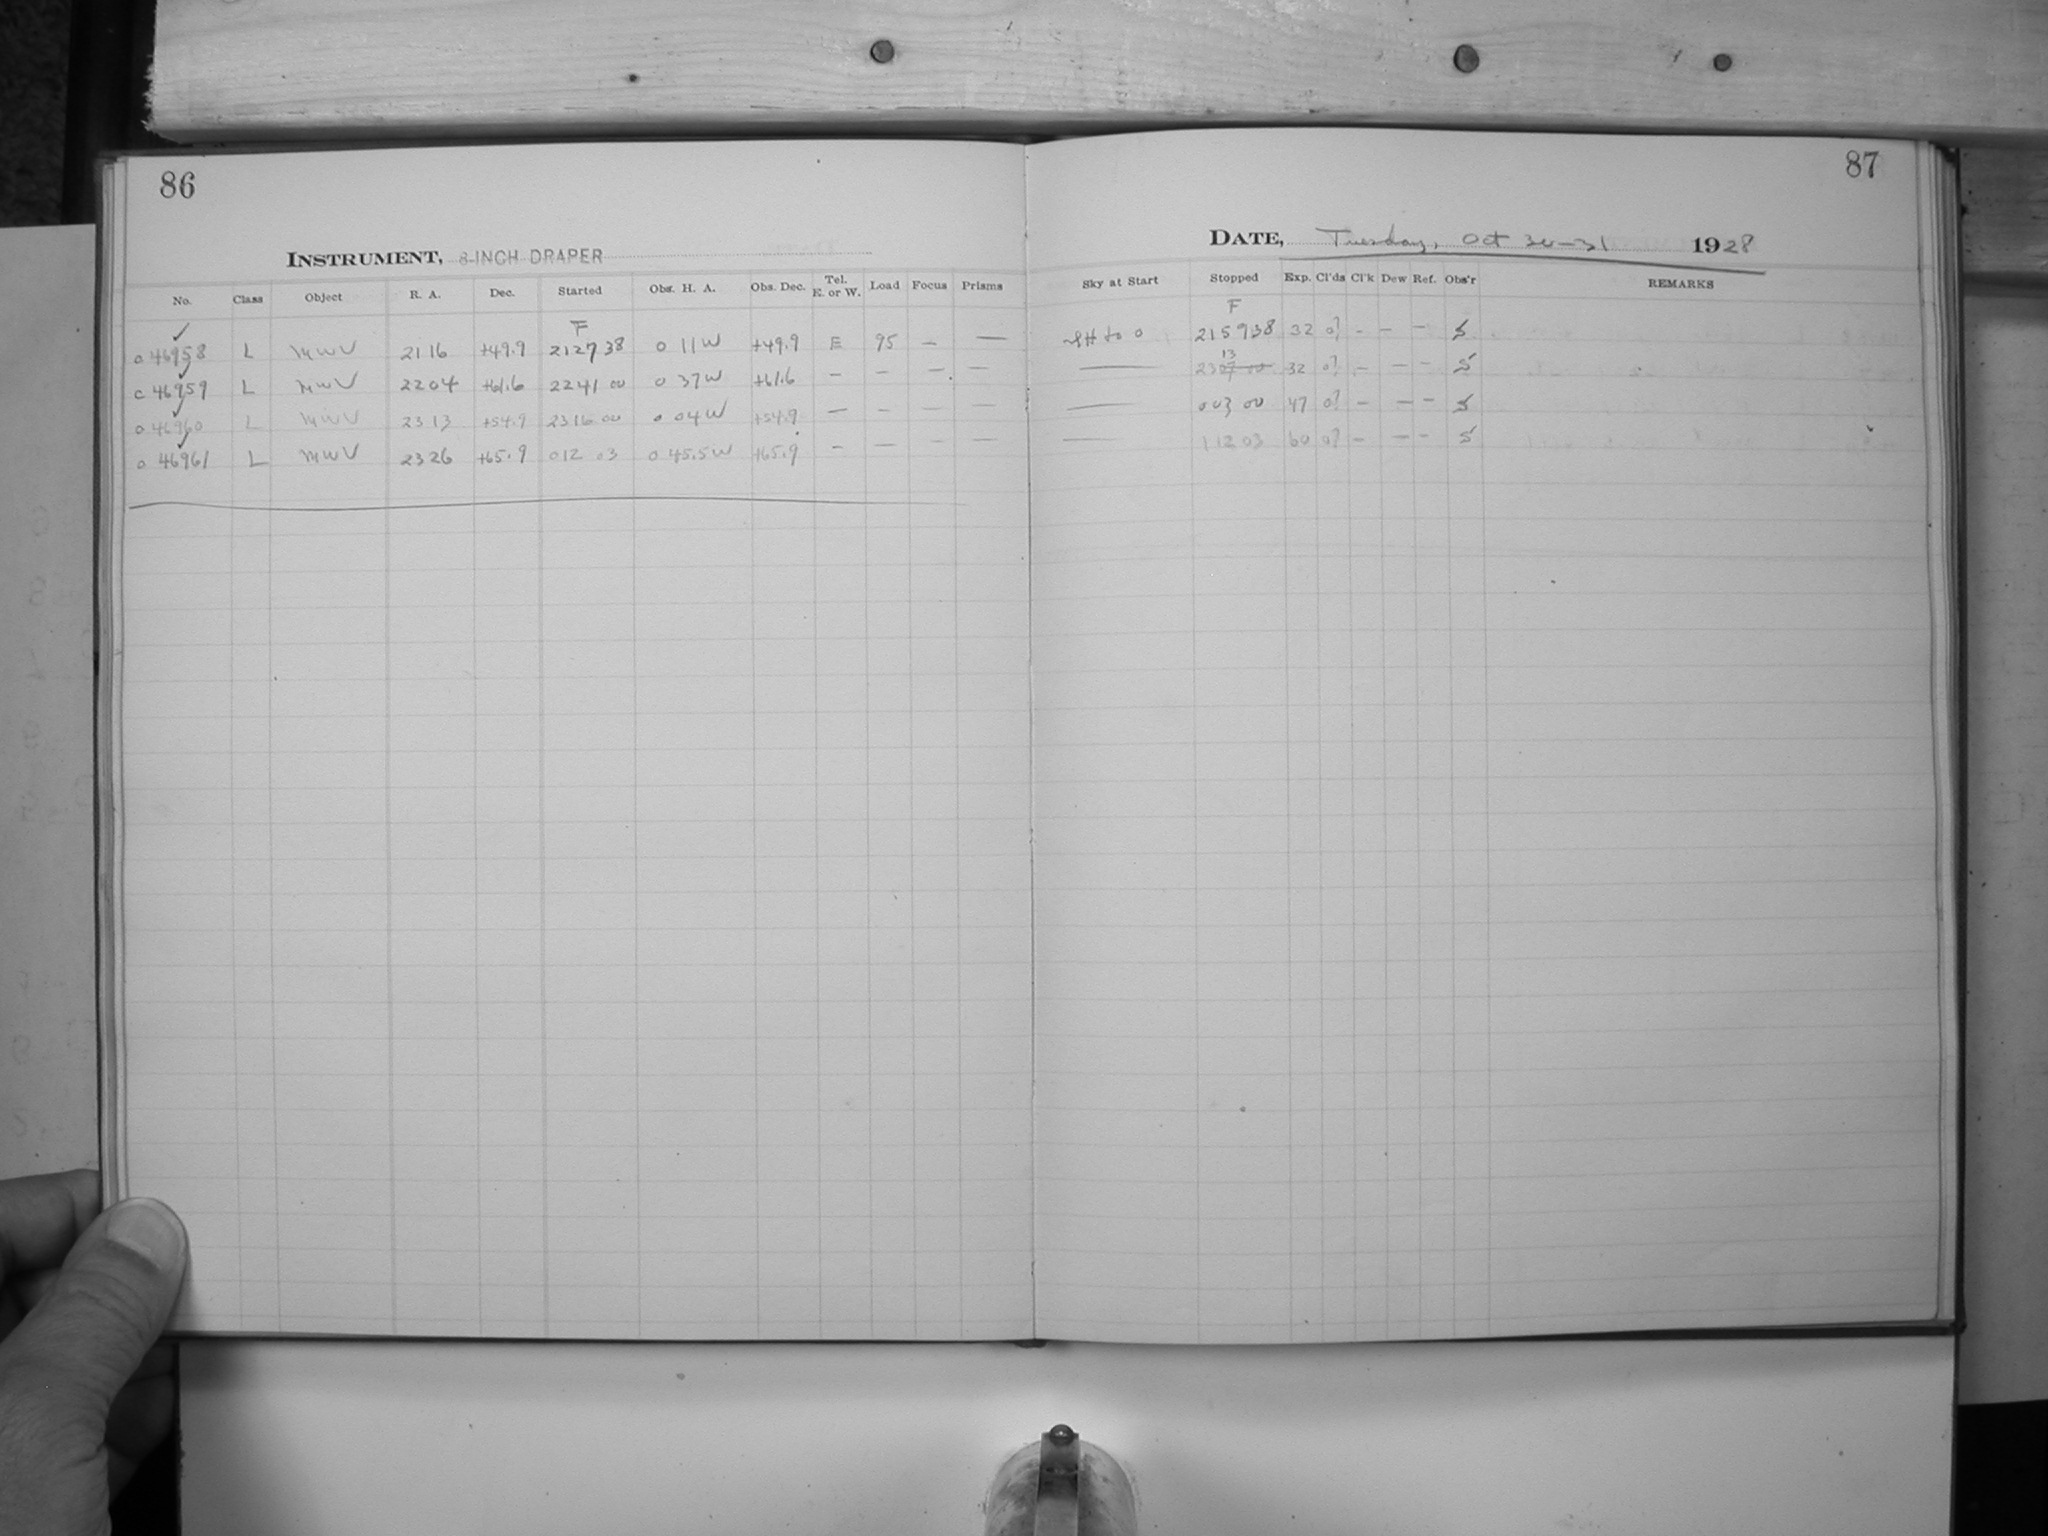 86
INSTRUMENT, 8-INCH DRAPER
No. Class Object R. A. Dec. Started Obs. H. A. Obs. Dec. Tel. E. or W. Load Focus Prisms
F
46958 L MWV 21 16 +49.9 21 27 38 0 11 W +49.9 E 95 — —
46959 L MWV 22 04 +61.6 22 41 00 0 37 W +61.6 — — — —
46960 L MWV 23 13 +54.9 23 16 00 0 04 W +54.9 — — — —
46961 L MWV 23 26 +65.9 0 12 03 0 45.5 W +65.9 — — — —
87
DATE, Tuesday, Oct 30-31 1928
Sky at Start Stopped Exp. Cl'ds Cl'k Dew Ref. Obs'r REMARKS
F
to 0 21 59 38 32 0? — — — S
13
— 23 32 0? — — — S
— 0 03 00 47 0? — — — S
— 1 12 03 60 0? — — — S